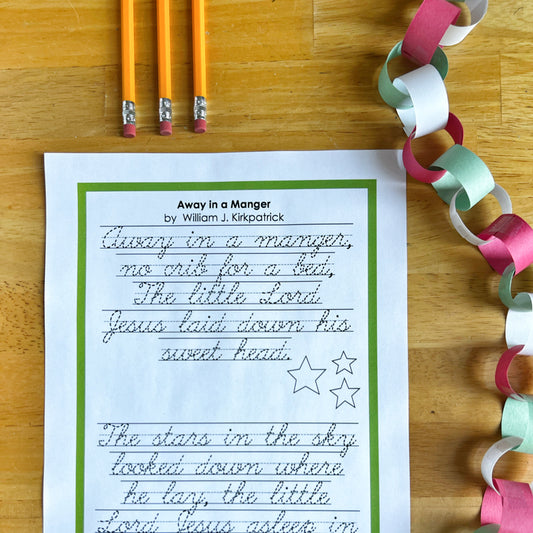 Away in a Manger
by William J. Kirkpatrick
Away in a manger,
no crib for a bed,
The little Lord
Jesus laid down his
sweet head.
The stars in the sky
looked down where
he lay, the little
Lord Jesus asleep in